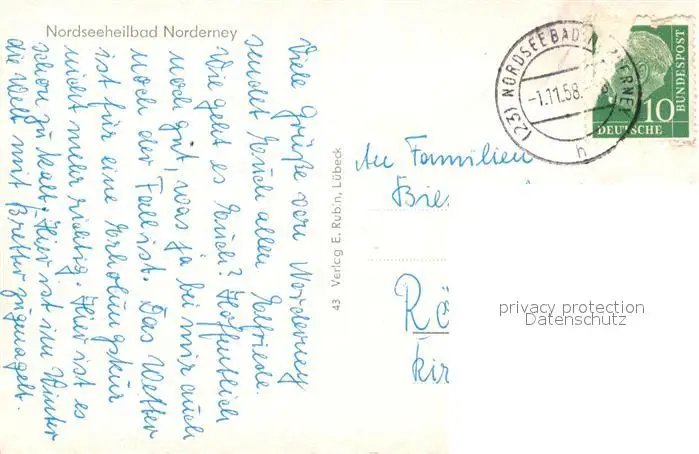 Nordseeheilbad Norderney
Viele Grüße von Norderney
sendet Euch allen Elfriede.
Wie geht es Euch? Hoffentlich
noch gut, was ja bei mir auch
noch der Fall ist. Das Wetter
ist für eine Erholungskur
nicht mehr richtig. Hier ist es
schon zu kalt. Hier ist im Winter
die Welt mit Bretter zugenagelt.
43 Verlag E. Rubin, Lübeck
(23) NORDSEEBAD NORDERNEY
-1.11.58.
h
10
DEUTSCHE
BUNDESPOST
An Familien
Bie
Rö
kir
privacy protection
Datenschutz